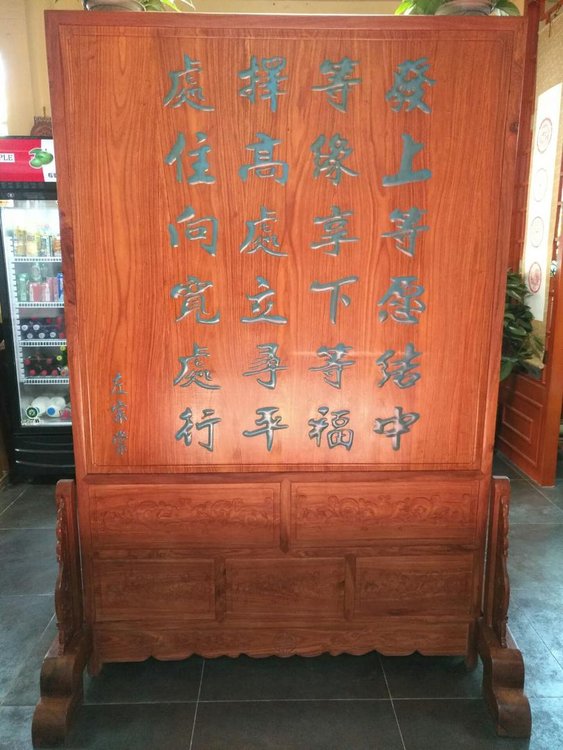 發上等愿结中
等缘享下等福
擇高處立寻平
處住向宽處行
左宗棠
PLE